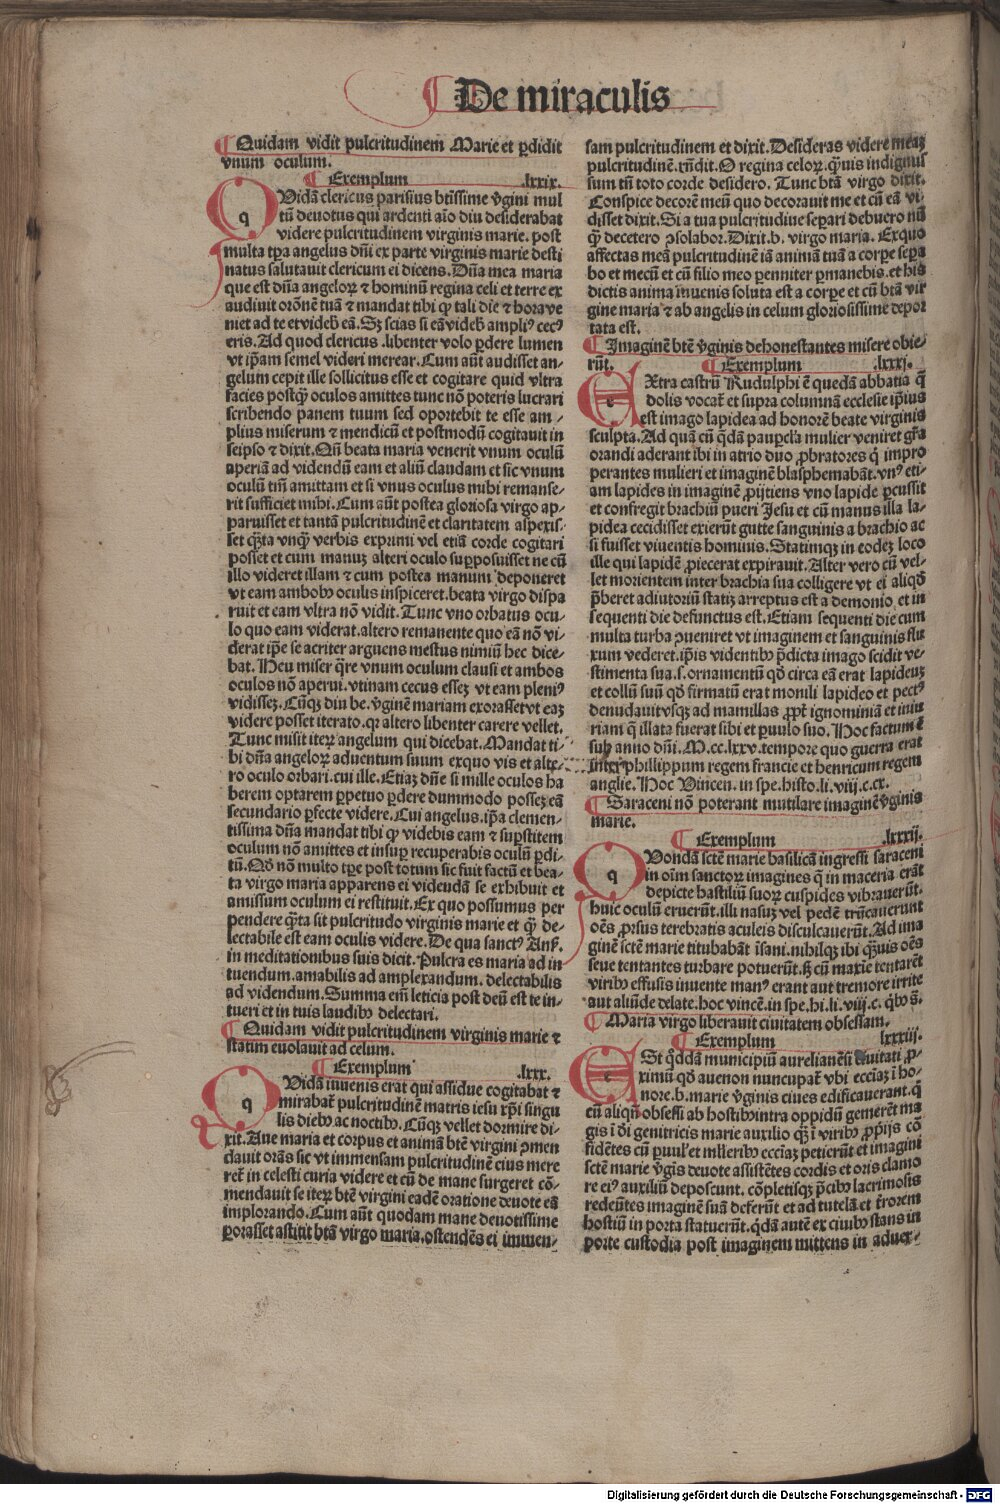 De miraculis
Quidam vidit pulcritudinem Marie et ꝑdidit
vnum oculum.
Exemplum .lxxix.
QVidã clericus parisius btissime v̄gini mul
tũ deuotus qui ardenti aĩo diu desiderabat
videre pulcritudinem virginis marie. post
multa tp̃a angelus dñi ex parte virginis marie desti
natus salutauit clericum ei dicens. Dña mea maria
que est dña angeloꝝ ⁊ hominũ regina celi et terre ex
audiuit orõnẽ tuã ⁊ mandat tibi ꝙ tali die ⁊ hora ve
niet ad te et videb̃ eã. Sꝫ scias si eã videb̃ ampliꝰ cecꝰ
eris. Ad quod clericus .libenter volo ꝑdere lumen
vt ip̃am semel videri merear. Cum aũt audisset an-
gelum cepit ille sollicitus esse et cogitare quid vltra
facies postꝙ̃ oculos amittes tunc nõ poteris lucrari
scribendo panem tuum sed oportebit te esse am-
plius miserum ⁊ mendicũ et postmodũ cogitauit in
seipso ⁊ dixit. Qñ beata maria venerit vnum oculũ
aperiã ad videndũ eam et aliũ claudam et sic vnum
oculũ tm̃ amittam et si vnus oculus mihi remanse-
rit sufficiet mihi. Cum aũt postea gloriosa virgo ap-
paruisset et tantã pulcritudinẽ et claritatem aspexis-
set qñta vnꝙ̃ verbis exprimi vel etiã corde cogitari
posset et cum manuꝫ alteri oculo suꝑposuisset ne cũ
illo videret illam ⁊ cum postea manum deponeret
vt eam amboꝫ oculis inspiceret. beata virgo dispa
ruit et eam vltra nõ vidit. Tunc vno orbatus ocu-
lo quo eam viderat. altero remanente quo eã nõ vi-
derat ip̃e se acriter arguens mestus nimiũ hec dice-
bat. Heu miser q̃re vnum oculum clausi et ambos
oculos nõ aperui. vtinam cecus esseꝫ vt eam pleniꝰ
vidisseꝫ. Cũqꝫ diu be. v̄ginẽ mariam exorasset vt eaꝫ
videre posset iterato. qꝛ altero libenter carere vellet.
Tunc misit iteꝝ angelum qui dicebat. Mandat ti-
bi dña angeloꝝ aduentum suum exquo vis et alte-
ro oculo orbari. cui ille. Etiaꝫ dñe si mille oculos ha
berem optarem ꝑpetuo ꝑdere dummodo posseꝫ eã
secundario ꝑfecte videre. Cui angelus. ip̃a clemen-
tissima dña mandat tibi ꝙ videbis eam ⁊ suꝑstitem
oculum nõ amittes et insuꝑ recuperabis oculũ ꝑdi-
tũ. Qd̃ nõ multo tp̃e post totum sic fuit factũ et bea-
ta virgo maria apparens ei videndã se exhibuit et
amissum oculum ei restituit. Ex quo possumus per
pendere qñta sit pulcritudo virginis marie et ꝙ̃ de-
lectabile est eam oculis videre. De qua sanctꝰ Ans̃.
in meditationibus suis dicit. Pulcra es maria ad in
tuendum. amabilis ad amplexandum. delectabilis
ad videndum. Summa em̃ leticia post deũ est te in-
tueri et in tuis laudibꝫ delectari.
Quidam vidit pulcritudinem virginis marie ⁊
statim euolauit ad celum.
Exemplum .lxxx.
QVidã iuuenis erat qui assidue cogitabat ⁊
mirabat̃ pulcritudinẽ matris iesu xp̃i singu
lis diebꝫ ac noctibꝫ. Cũqꝫ vellet dormire di-
xit. Aue maria et corpus et animã btẽ virgini ꝯmen
dauit orãs sic vt immensam pulcritudinẽ eius mere
ret̃ in celesti curia videre et cũ de mane surgeret cõ-
mendauit se iteꝝ btẽ virgini eadẽ oratione deuote eã
implorando. Cum aũt quodam mane deuotissime
ꝑorasset astitit btã virgo maria. ostendẽs ei immen-
sam pulcritudinem et dixit. Desideras videre meaꝫ
pulcritudinẽ. rñdit. O regina celoꝝ. ꝙ̃uis indignus
sum tñ toto corde desidero. Tunc btã virgo dixit.
Conspice decorẽ meũ quo decorauit me et cũ eã vi-
disset dixit. Si a tua pulcritudine seꝑari debuero nũ
ꝙ̃ decetero ꝯsolabor. Dixit. b. virgo maria. Exquo
affectas meã pulcritudinẽ iã animã tuã a corꝑe seꝑa
bo et mecũ et cũ filio meo ꝑenniter ꝑmanebis. et his
dictis anima iuuenis soluta est a corꝑe et cũ btã vir
gine maria ⁊ ab angelis in celum gloriosissime depor
tata est.
Imaginẽ btẽ v̄ginis dehonestantes misere obie-
rũt. Exemplum .lxxxj.
EXtra castrũ Rudulphi ẽ quedã abbatia q̃
dolis vocat̃ et supra columnã ecclesie ip̃ius
est imago lapidea ad honorẽ beate virginis
sculpta. Ad quã cũ q̃dã pauꝑcl̃a mulier veniret gr̃a
orandi aderant ibi in atrio duo ꝓbratores q̃ impro
perantes mulieri et imaginẽ blasphemabãt. vnꝰ eti-
am lapides in imaginẽ ꝓijciens vno lapide ꝑcussit
et confregit brachiũ pueri Jesu et cũ manus illa la-
pidea cecidisset exierũt gutte sanguinis a brachio ac
si fuisset viuentis hominis. Statimqꝫ in eodeꝫ loco
ille qui lapidẽ ꝓiecerat expirauit. Alter vero cũ vel-
let morientem inter brachia sua colligere vt ei aliqd̃
p̃beret adiutoriũ statiꝫ arreptus est a demonio et in
sequenti die defunctus est. Etiam sequenti die cum
multa turba ꝯueniret vt imaginem et sanguinis flu
xum vederet. ip̃is videntibꝫ p̃dicta imago scidit ve-
stimenta sua. s. ornamentũ qd̃ circa eã erat lapideuꝫ
et collũ suũ qd̃ firmatũ erat monili lapideo et pectꝰ
denudauit vsqꝫ ad mamillas ꝓpt̃ ignominiã et iniu
riam q̃ illata fuerat sibi et ꝑuulo suo. Hoc factum ẽ
sub anno dñi. M.cc.lxxv. tempore quo guerra erat
inter phillippum regem francie et henricum regem
anglie. Hoc Vincen. in spe. histo. li. viij. c. cx.
Saraceni nõ poterant mutilare imaginẽ v̄ginis
marie.
Exemplum .lxxxij.
QVondã sctẽ marie basilicã ingressi saraceni
in oĩm sanctoꝝ imagines q̃ in maceria erãt
depicte hastiliũ suoꝝ cuspides vibrauerũt.
huic oculũ eruerũt. illi nasuꝫ vel pedẽ trũcauerunt
oẽs ꝓrsus terebratis aculeis disculcauerũt. Ad ima
ginẽ sctẽ marie titubabãt ĩsani. nihilqꝫ ibi ꝙ̃uis oẽs
seue tentantes turbare potuerũt. sꝫ cũ maxie tentarẽt
viribꝫ effusis inuente manꝰ erant aut tremore irrite
aut aliũde delate. hoc vincẽ. in spe. hi. li. viij. c. q̃bꝫ s̃.
Maria virgo liberauit ciuitatem obsessam.
Exemplum lxxxiij.
ESt q̃ddã municipiũ aurelianẽsi ciuitati ꝓ-
ximũ qd̃ auenon nuncupat̃ vbi ecclãꝫ ĩ ho-
nore. b. marie v̄ginis ciues edificauerant. q̃
cũ aliqñ obsessi ab hostibꝫ intra oppidũ gemerẽt ma
gis ĩ dĩ genitricis marie auxilio ꝙ̃ ĩ viribꝫ ꝓpijs cõ
fidẽtes cũ ꝑuul̃ et ml̃ieribꝫ ecclãꝫ petierũt et imagini
sctẽ marie v̄gĩs deuote assistẽtes cordis et oris clamo
re eiꝰ auxiliũ deposcunt. cõpletisqꝫ p̃cibꝫ lacrimosis
redeũtes imaginẽ suã deferũt et ad tutelã et t̃rorem
hostiũ in porta statuerũt. q̃dã autẽ ex ciuibꝫ stans in
porte custodia post imaginem mittens in aduer-
Digitalisierung gefördert durch die Deutsche Forschungsgemeinschaft - DFG